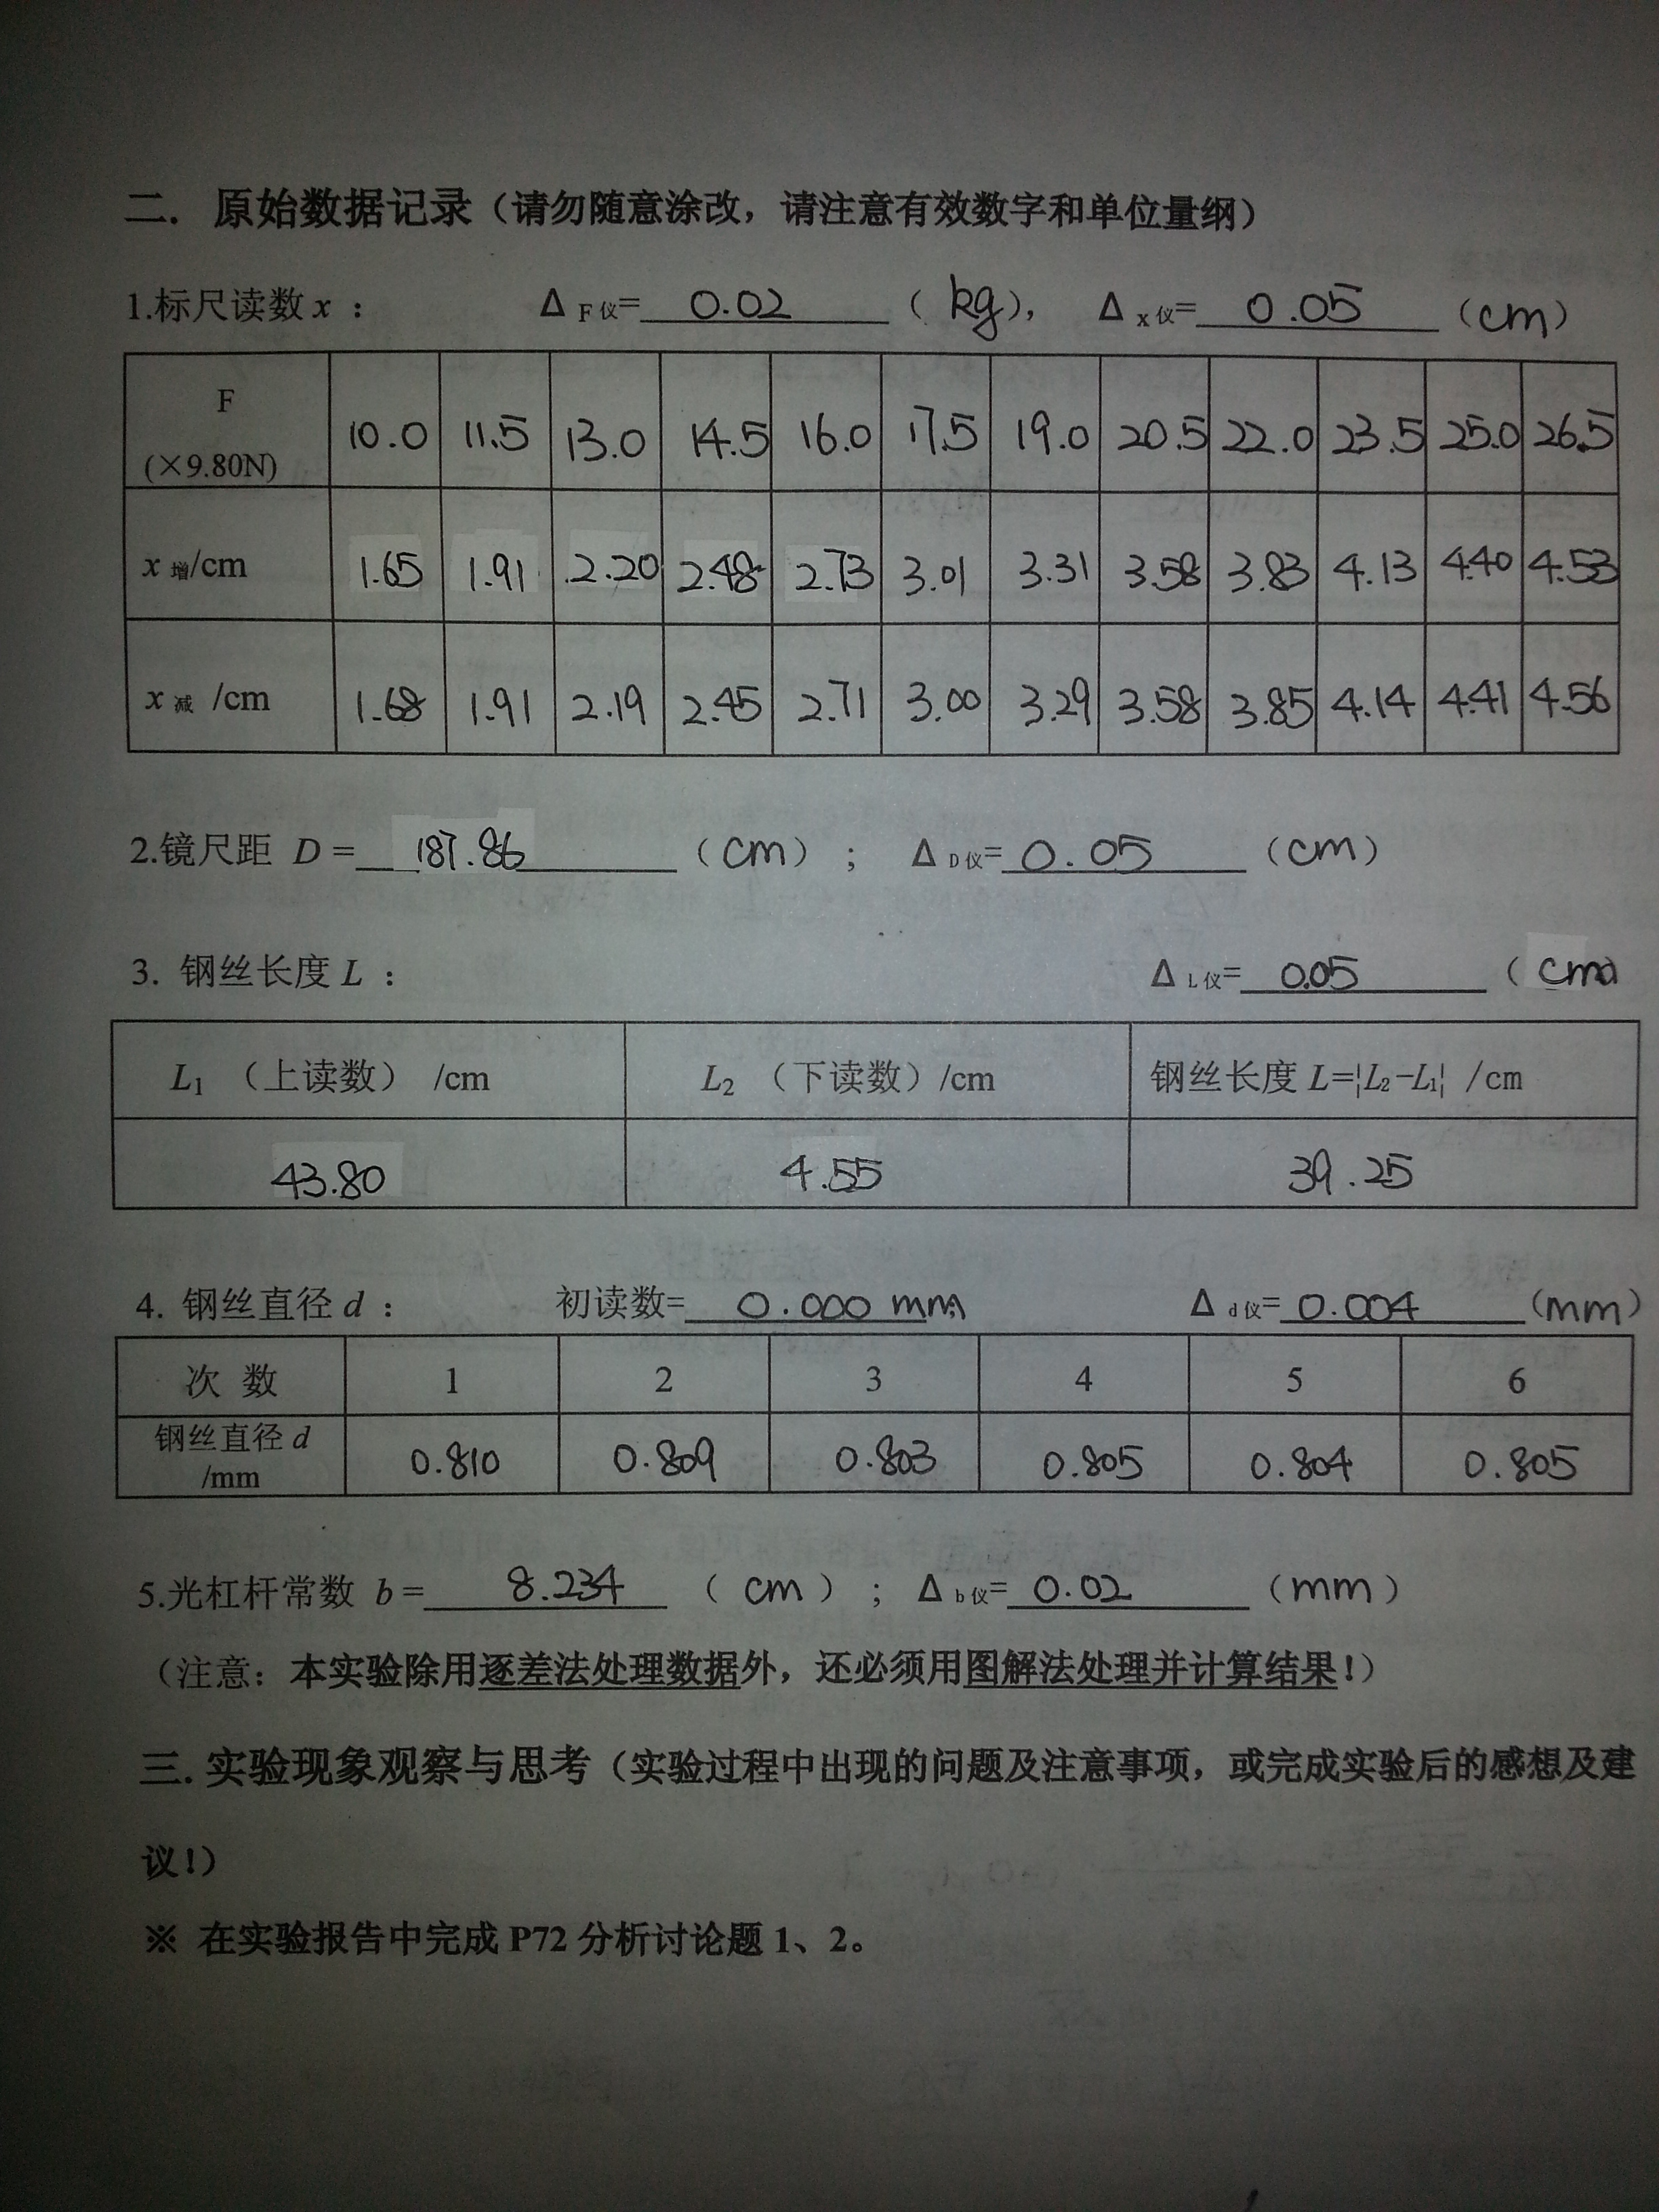 二. 原始数据记录（请勿随意涂改，请注意有效数字和单位量纲）
1.标尺读数 x ： Δ F仪= 0.02 （ kg ）， Δ x仪= 0.05 （cm）
F (×9.80N) 10.0 11.5 13.0 14.5 16.0 17.5 19.0 20.5 22.0 23.5 25.0 26.5
x 增/cm 1.65 1.91 2.20 2.48 2.73 3.01 3.31 3.58 3.83 4.13 4.40 4.53
x 减 /cm 1.68 1.91 2.19 2.45 2.71 3.00 3.29 3.58 3.85 4.14 4.41 4.56
2.镜尺距 D = 187.86 （cm）； Δ D仪= 0.05 （cm）
3. 钢丝长度 L ： Δ L仪= 0.05 （cm）
L1 （上读数） /cm L2 （下读数）/cm 钢丝长度 L=¦L2-L1¦ /cm
43.80 4.55 39.25
4. 钢丝直径 d ： 初读数= 0.000 mm Δ d仪= 0.004 （mm）
次 数 1 2 3 4 5 6
钢丝直径 d /mm 0.810 0.809 0.803 0.805 0.804 0.805
5.光杠杆常数 b = 8.234 （ cm ）； Δ b仪= 0.02 （mm）
（注意：本实验除用逐差法处理数据外，还必须用图解法处理并计算结果！）
三. 实验现象观察与思考（实验过程中出现的问题及注意事项，或完成实验后的感想及建
议！）
※ 在实验报告中完成 P72 分析讨论题 1、2。